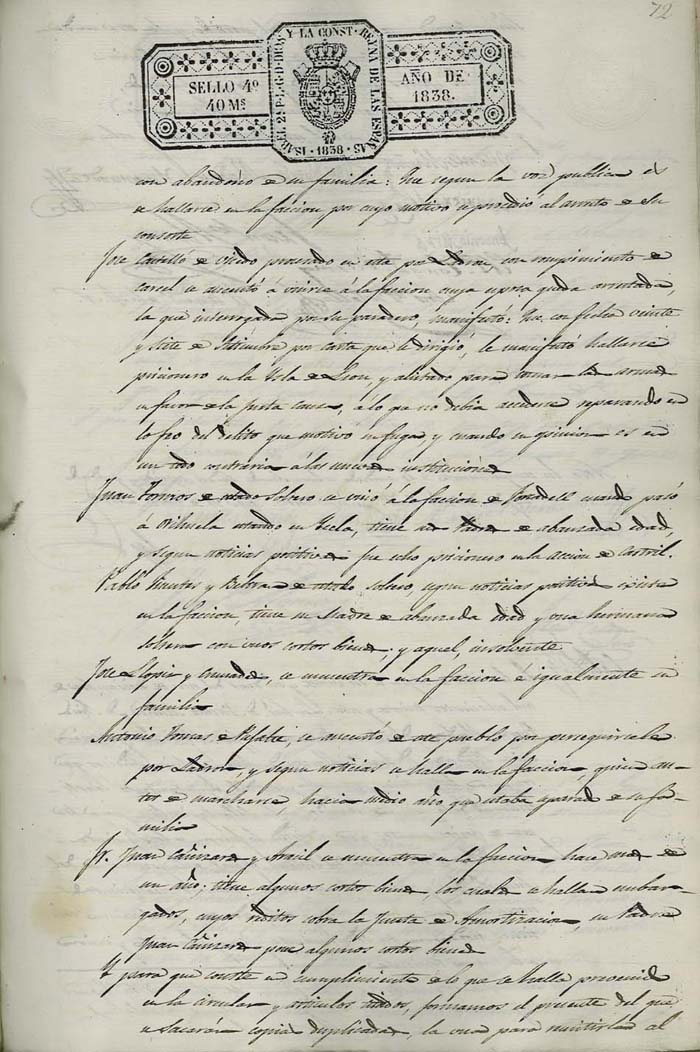 72
ISABEL 2ª P. L. G. D. DIOS Y LA CONST. REYNA DE LAS ESPAÑAS
SELLO 4º
40 Ms
AÑO DE
1838.
· 1838 ·
con abandono de su familia: que segun la voz publica es
de hallarse en la faccion por cuyo motivo se procedió al arresto de su
consorte
Jose Castelló de Oviedo procesado en este por Ladron con rompimiento de
carcel se ausentó a unirse á la faccion cuya esposa queda arrestada,
la que interrogada por su paradero, manifestó: que con fecha veinte
y siete de Setiembre por carta que le dirigió, le manifestó hallarse
prisionero en la Ysla de Leon, y alistado para tomar las armas
en favor de la justa causa, á lo que no debia accederse reparando en
lo feo del delito que motivo su fuga y cuando su opinion es en
un todo contraria á las nuevas instituciones
Juan Tormos de estado Soltero se unió á la faccion de Forcadell cuando pasó
a Orihuela estando en Yecla, tiene sus Padres de abanzada edad,
y segun noticias positivas fue echo prisionero en la accion de Castril.
Pablo y Beltran de estado soltero, segun noticias positivas existe
en la faccion, tiene su Madre de abanzada edad y una hermana
soltera con unos cortos bienes, y aquel, insolvente
Jose Llopis y, se encuentra en la faccion e igualmente su
familia
Antonio Tomas de, se ausentó de este pueblo por perseguirsele
por Ladron, y segun noticias se halla en la faccion, quien an-
tes de marcharse, hacia medio año que estaba separado de su fa-
milia
Fr. Juan Cañizares y se encuentra en la faccion hace mas de
un año; tiene algunos cortos bienes, los cuales se hallan embar-
gados, cuyos réditos cobra la Junta de Amortizacion, su Padre
Juan Cañizares posee algunos cortos bienes
Y para que conste en cumplimiento de lo que se halla prevenido
en la circular y articulos citados, formamos el presente del que
se sacarán copias duplicadas, la una para remitirlas al